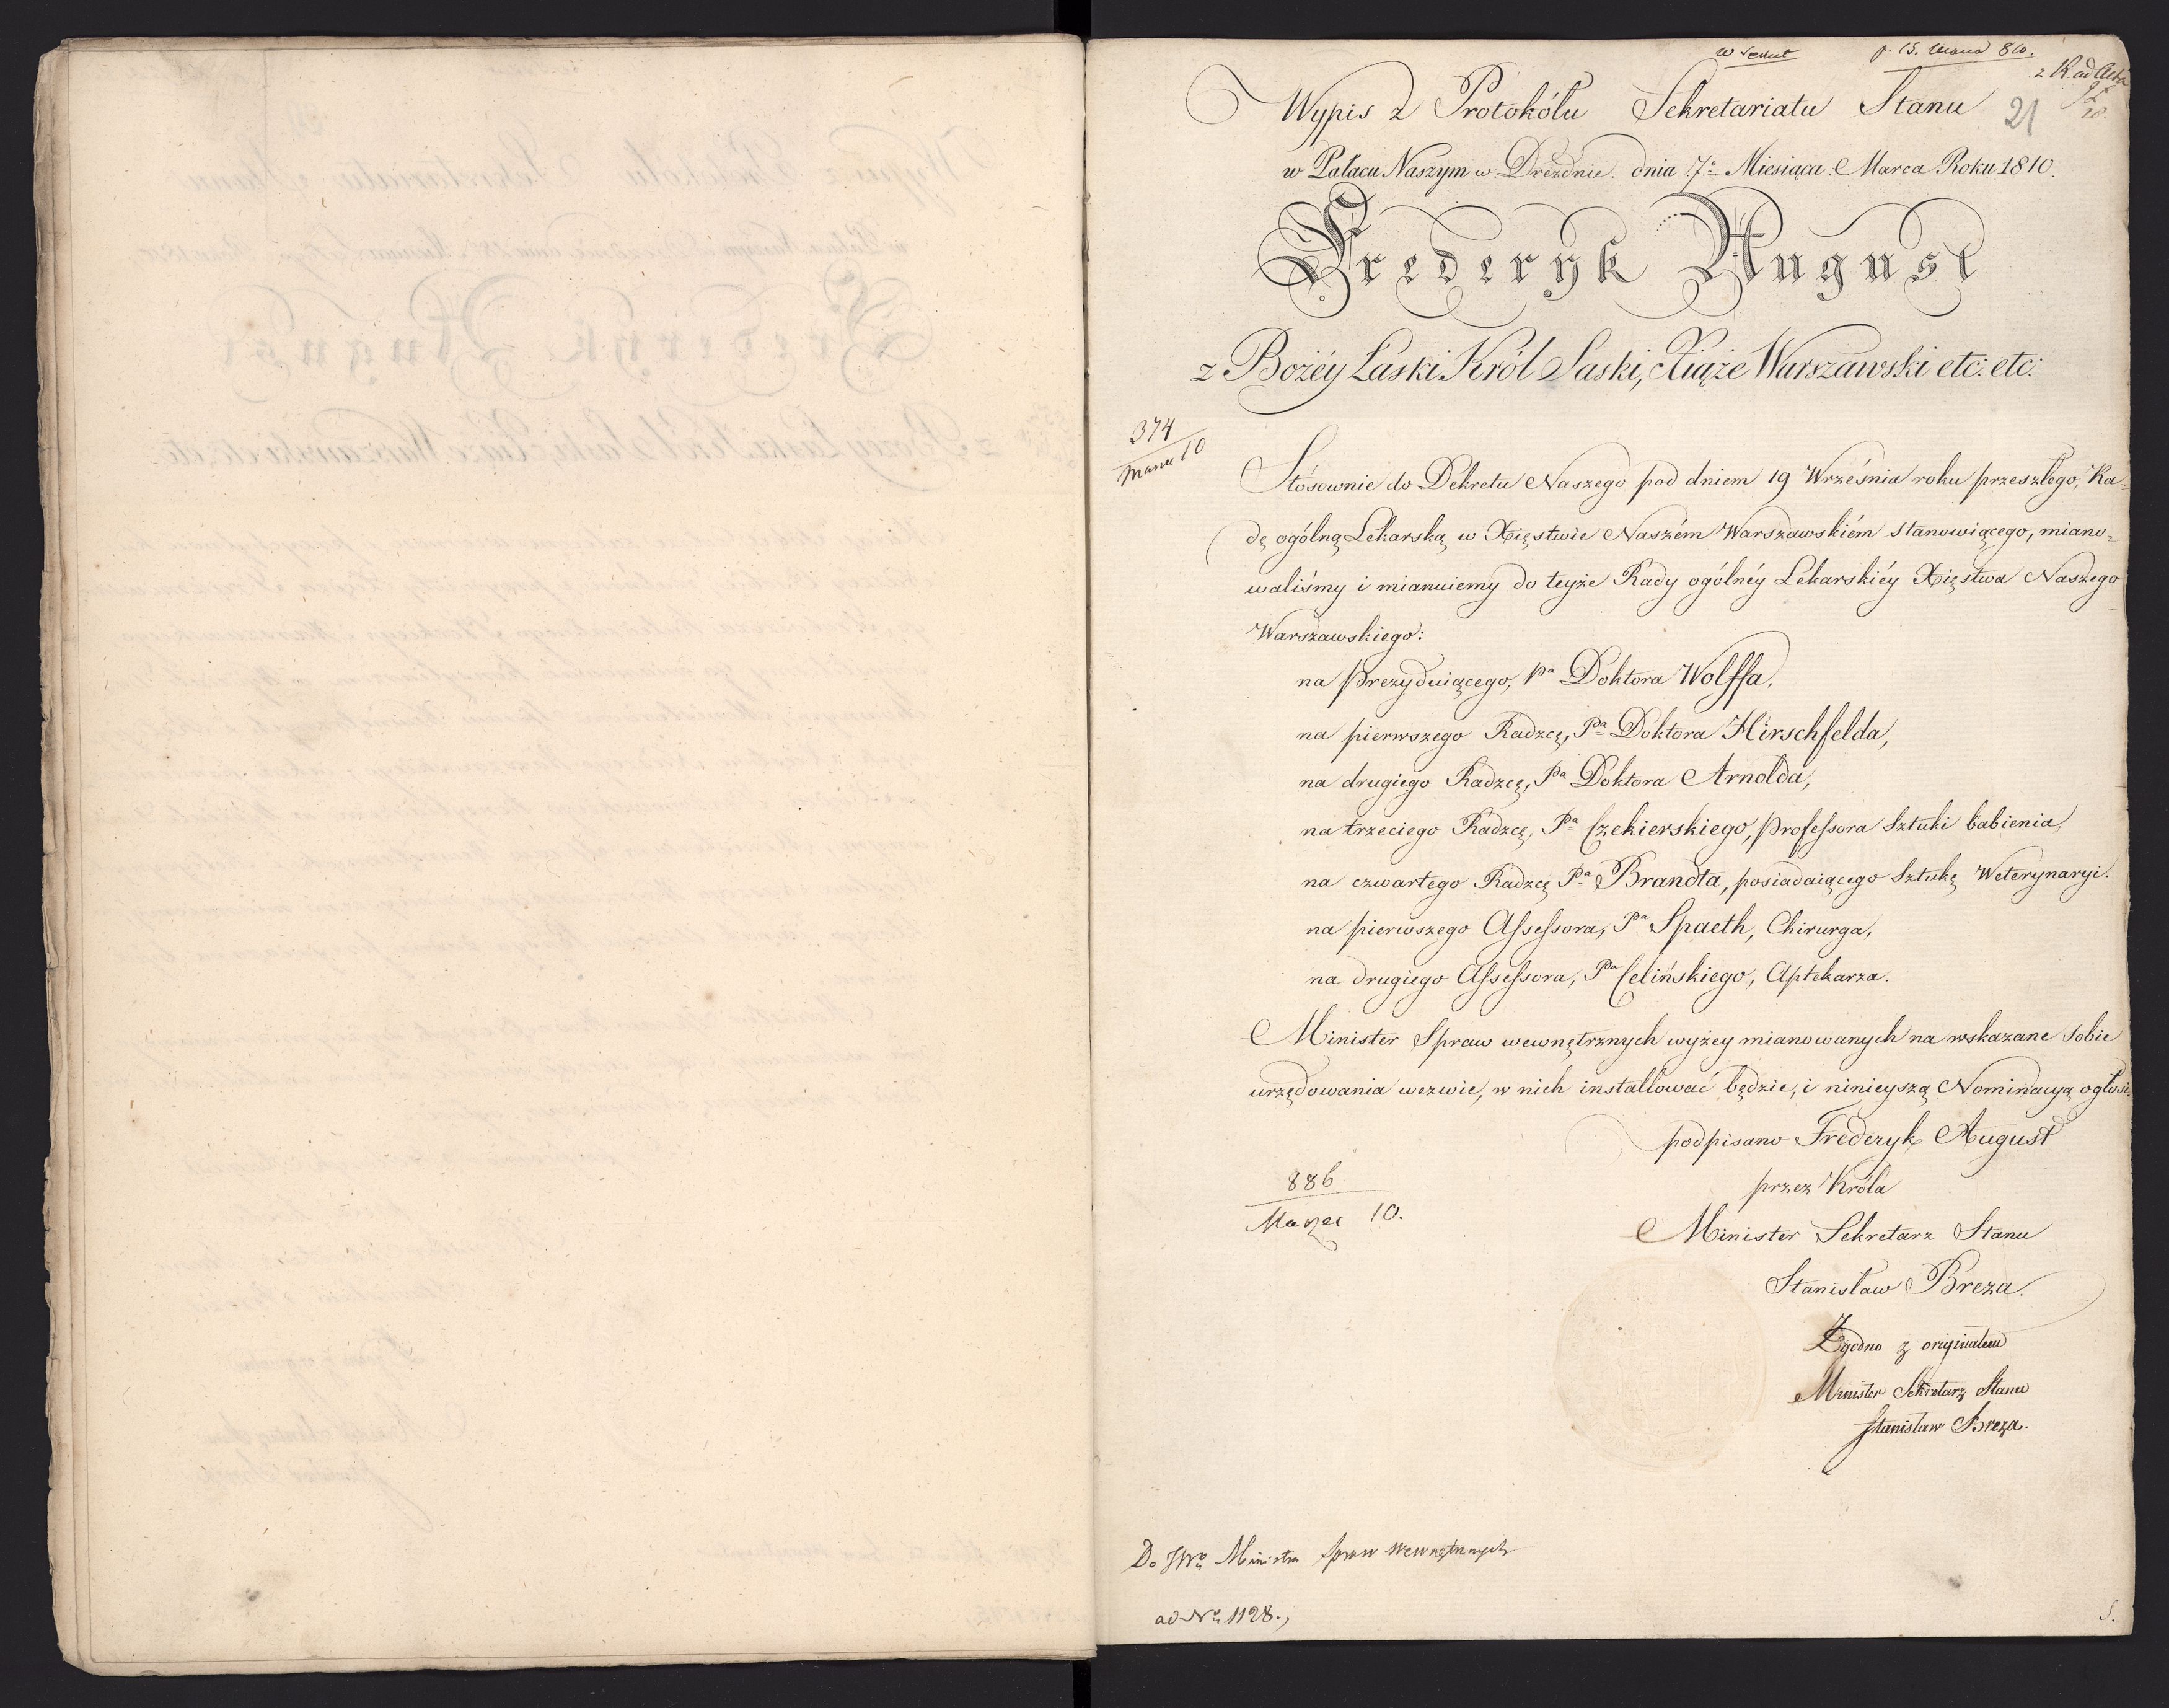 p. 15. Marca 810.
z R. ad Acta
Wypis z Protokółu Sekretariatu Stanu
21
w Pałacu Naszym w Dreznie. dnia 7º Miesiąca Marca Roku 1810.
Frederyk August
z Bożéy Łaski Król Saski, Xiąże Warszawski etc: etc:
374
Marca 10
Stósownie do Dekretu Naszego pod dniem 19 Września roku przeszłego, Ra-
dę ogólną Lekarską w Xięstwie Naszém Warszawskiém stanowiącego, miano-
waliśmy i mianuiemy do teyże Rady ogólnéy Lekarskiéy Xięstwa Naszego
Warszawskiego:
na prezyduiącego, Pa Doktora Wolffa,
na pierwszego Radzcę, Pa Doktora Hirschfelda,
na drugiego Radzcę, Pa Doktora Arnolda,
na trzeciego Radzcę, Pa Czekierskiego, Professora Sztuki babienia,
na czwartego Radzcę Pa Brandta, posiadaiącego Sztukę Weterynaryi.
na pierwszego Assessora, Pa Spaeth, Chirurga,
na drugiego Assessora, Pa Celińskiego, Aptekarza.
Minister Spraw wewnętrznych wyżey mianowanych na wskazane sobie
urzędowania wezwie, w nich installować będzie, i ninieyszą Nominacyą ogłosi.
podpisano Frederyk August
przez Króla
886
Marzec 10.
Minister Sekretarz Stanu
Stanisław Breza.
Zgodno z originałem
Minister Sekretarz Stanu
Stanisław Breza.
Do JWº Ministra Spraw Wewnętrznych
ad Nº 1128.,
S.